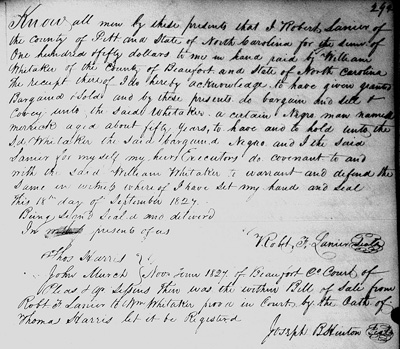 294
Know all men by these presents that I Robert Lanier of
the County of Pitt and State of North Carolina for the sum of
One hundred & fifty dollars to me in hand paid by William
Whitaker of the County of Beaufort and State of North Carolina
the receipt thereof I do hereby acknowledge to have given granted
Bargained & Sold and by these presents do bargain and sell &
Convey unto the said Whitaker a certain Negro man named
aged about fifty years, to have and to hold unto the
Sd Whitaker the said bargained Negro and I the said
Lanier for my self my heirs Executors do covenant to and
with the said William Whitaker to warrant and defend the
Same in witness whereof I have set my hand and Seal
this 18th day of September 1827.
Being Signd Seald and deliverd
In presents of us
Robt. F. Lanier Seal
Thos Harris
John Murch Nov. Term 1827 of Beaufort Co Court of
Pleas & Qr Sessions then was the within Bill of Sale from
Robt F Lanier to Wm Whitaker provd in Court by the Oath of
Thomas Harris let it be Registerd
Joseph B Hinton